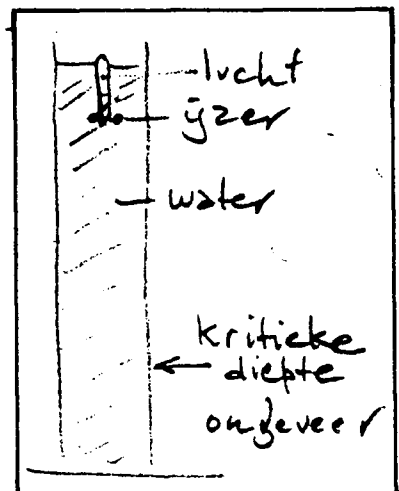 lucht
ijzer
water
kritieke
diepte
ongeveer